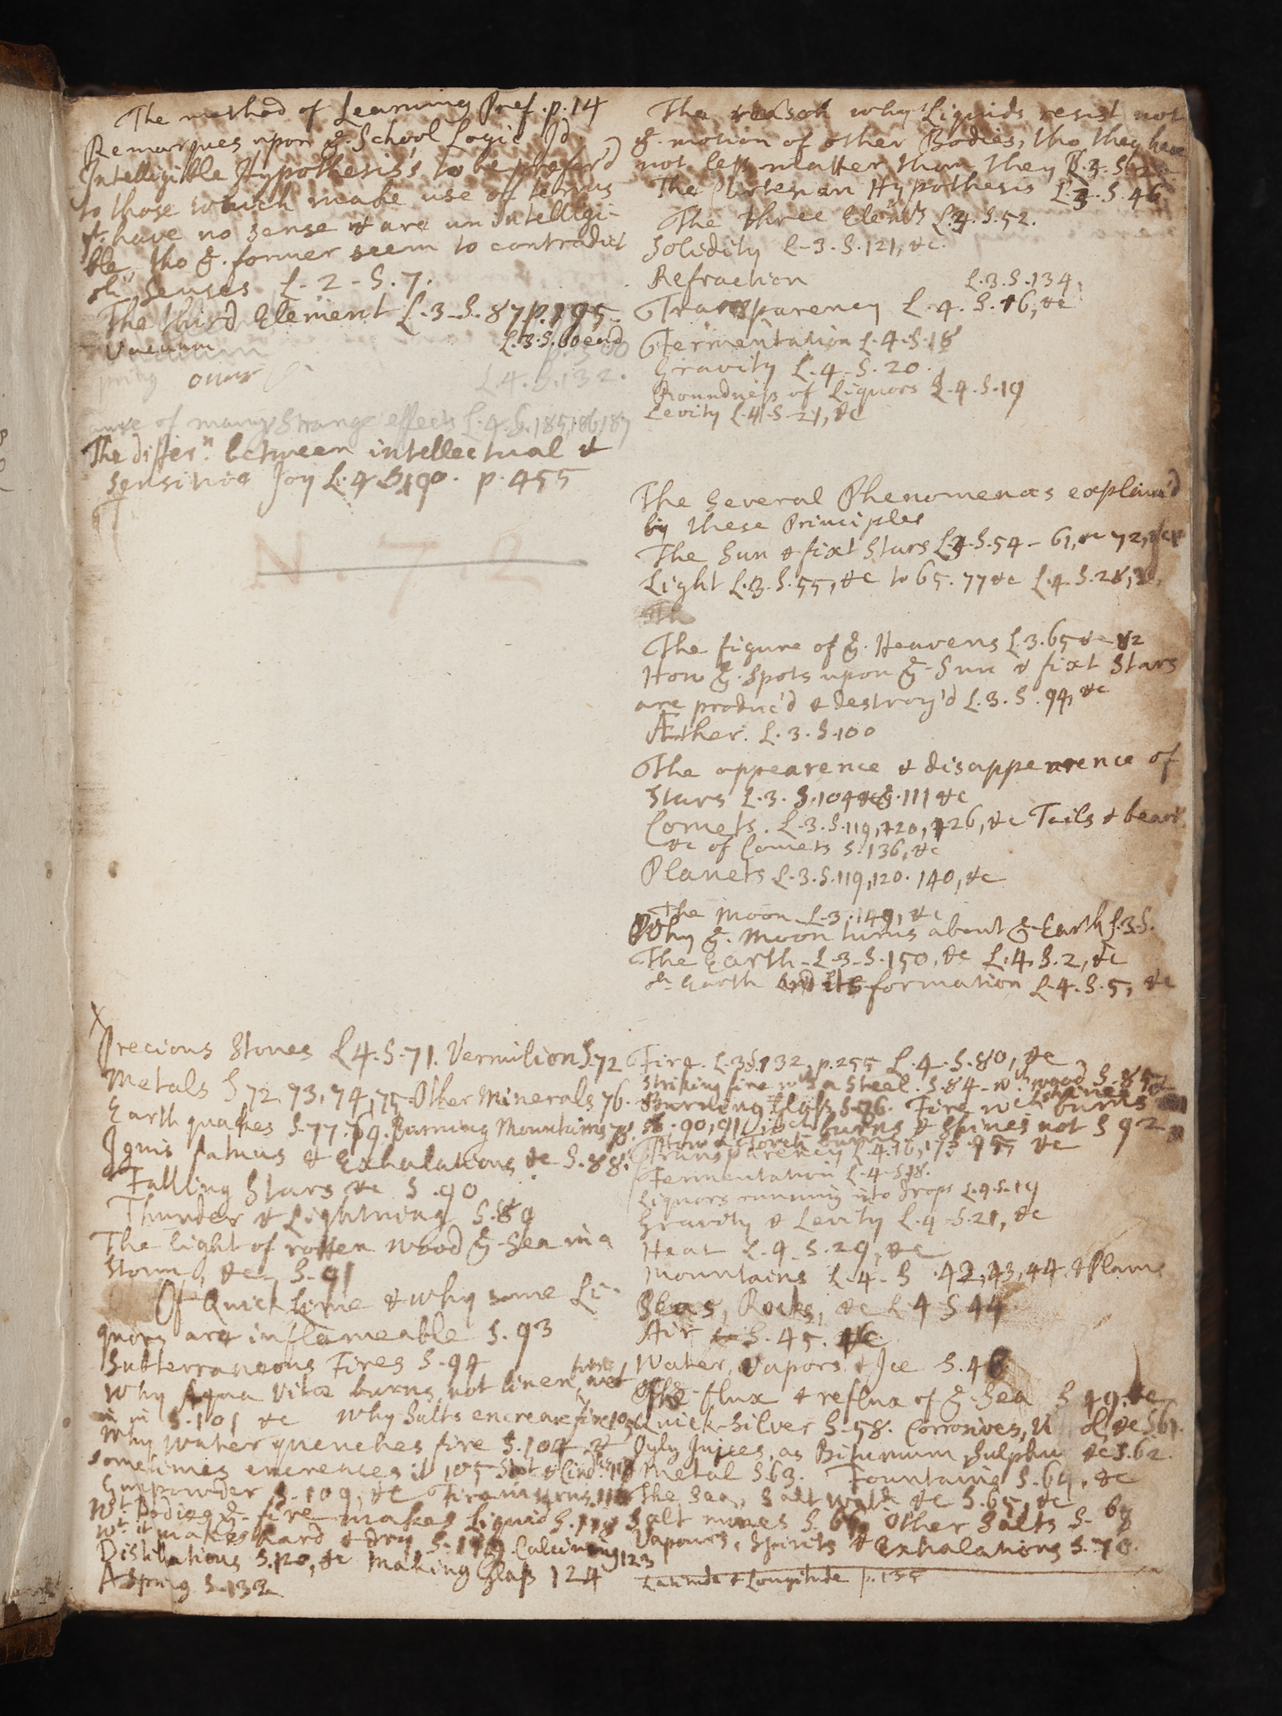 The method of Learning Pref. p. 14
Remarques upon ye School Logic Id
Intelligible Hypothesis's to be prefer'd
to those which make use of terms
yt have no sense & are unintelligi-
ble, tho ye former seem to contradict
our senses L. 2 - S. 7.
The third Element L. 3. S. 87 p. 195.
Vacuum L. 3. S. 60 end
L. 4. S. 132.
of many strange effects L. 4. S. 185, 186, 187
The differn between intellectual &
sensitive Joy L. 4 S. 190. p. 455
N. 7. 2
Precious Stones L. 4. S. 71. Vermilion S. 72
Metals S 72, 73, 74, 75 - Other Minerals 76.
Earth quakes S. 77. 79. Burning Mountains 78.
Ignis fatuus & Exhalations &c S. 88.
Falling Stars &c S. 90
Thunder & Lightning S. 89
The light of rotten wood ye Sea in a
storm, &c S. 91
Of Quick Lime & why some Li-
quors are inflameable S. 93
Subterraneous Fires S. 94
Why Aqua Vitæ burns not linen wet
in it S. 101 &c Why Salts encrease fire 103
Why Water quenches fire S. 104. &
sometimes encreases it 105
Gunpowder S. 109, &c
Wt Bodies ye fire makes liquid S. 118
Wt it makes hard & dry S. 119 Calcining 123
Distillations S. 120, &c Making Glass 124
A Spring S. 132
The reason why Liquids resist not
ye motion of other Bodies, tho they have
not less matter than they
The Cartesian Hypothesis L. 3. S. 46
The three Elemts L. 3. S. 52.
Solidity L. 3. S. 121, &c.
Refraction L. 3. S. 134.
Transparency L. 4. S. 16, &c
Fermentation L. 4. S. 18
Gravity L. 4. S. 20.
Roundness of Liquors L. 4. S. 19
Levity L. 4. S. 21, &c
The several Phenomenas explain'd
by these Principles
The Sun & fixt Stars L. 3. S. 54 - 61, 72, &c
Light L. 3. S. 55, &c to 65. 77 &c L. 4. S. 28, &c.
The figure of ye Heavens L. 3. 65 &c - 82
How ye Spots upon ye Sun & fixt Stars
are produc'd & destroy'd L. 3. S. 94, &c
Æther. L. 3. S. 100
The appearence & disappearence of
Stars L. 3. S. 104 & S. 111 &c
Comets. L. 3. S. 119, 120, 126, &c Tails & beard
&c of Comets S. 136, &c
Planets L. 3. S. 119, 120. 140, &c
The Moon L. 3. 149, &c
Why ye Moon turns about ye Earth L. 3. S.
The Earth L. 3. S. 150, &c L. 4. S. 2, &c
Earth and its formation L. 4. S. 5, &c
Fire. L. 3 S. 132, p. 255 L. 4. S. 80, &c
Striking fire wth a Steel. S. 84 - wth wood S. 85
Burning Glass S. 86. Fire wch burns
burns & shines not S 92
How a Torch burns S. 95 &c
Transparency L. 4. 16, 17
Fermentation L. 4. S. 18.
Liquors running into drops L. 4. S. 19
Gravity & Levity L. 4. S. 21, &c
Heat L. 4. S. 29, &c
Mountains L. 4. S. 42, 43, 44. & Plains
Seas, Rocks, &c L. 4 S 44.
Air S. 45. &c
Water, Vapors & Ice S. 48
The flux & reflux of ye Sea S 49. &c
Quick-Silver S. 58. Corrosives, &c S 61.
Oyly Juices, as Bitumum Sulphur &c S. 62.
Metal S. 63. Fountains S. 64, &c
The Sea, Salt &c S. 65, &c
Salt mines S. 66. Other Salts S. 68
Vapours, Spirits & Exhalations S. 70.
Latitude & Longitude p. 155